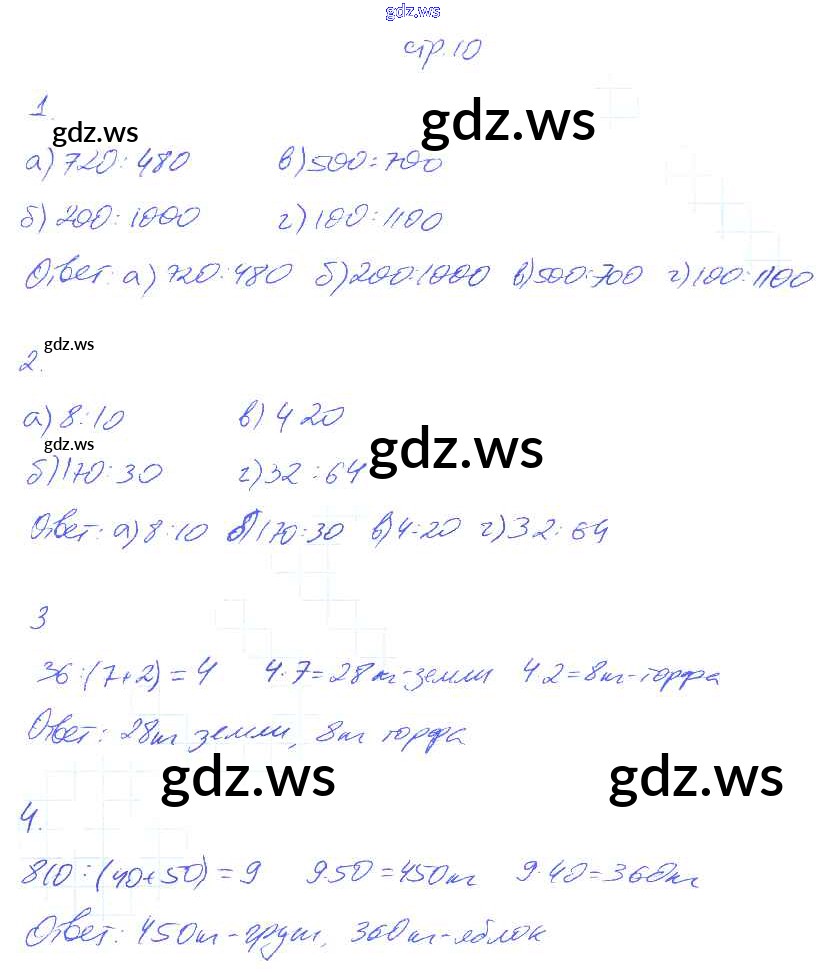 gdz.ws
стр.10
1.
gdz.ws
gdz.ws
а) 720:480 в) 500:700
б) 200:1000 г) 100:1100
Ответ: а) 720:480 б) 200:1000 в) 500:700 г) 100:1100
gdz.ws
2.
а) 8:10 в) 4 20
gdz.ws
gdz.ws
б) 170:30 г) 32:64
Ответ: а) 8:10 б) 170:30 в) 4:20 г) 32:64
3
36:(7+2)=4 4·7=28кг-земли 4·2=8кг-торфа
Ответ: 28кг земли, 8кг торфа
gdz.ws
gdz.ws
4.
810:(40+50)=9 9·50=450кг 9·40=360кг
Ответ: 450кг-груш, 360кг-яблок